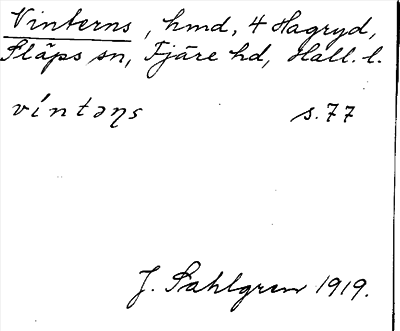 Vinterns, hmd, 4 Hagryd,
Släps sn, Fjäre hd, Hall. l.
víntəꞑs s. 77
J. Sahlgren 1919.